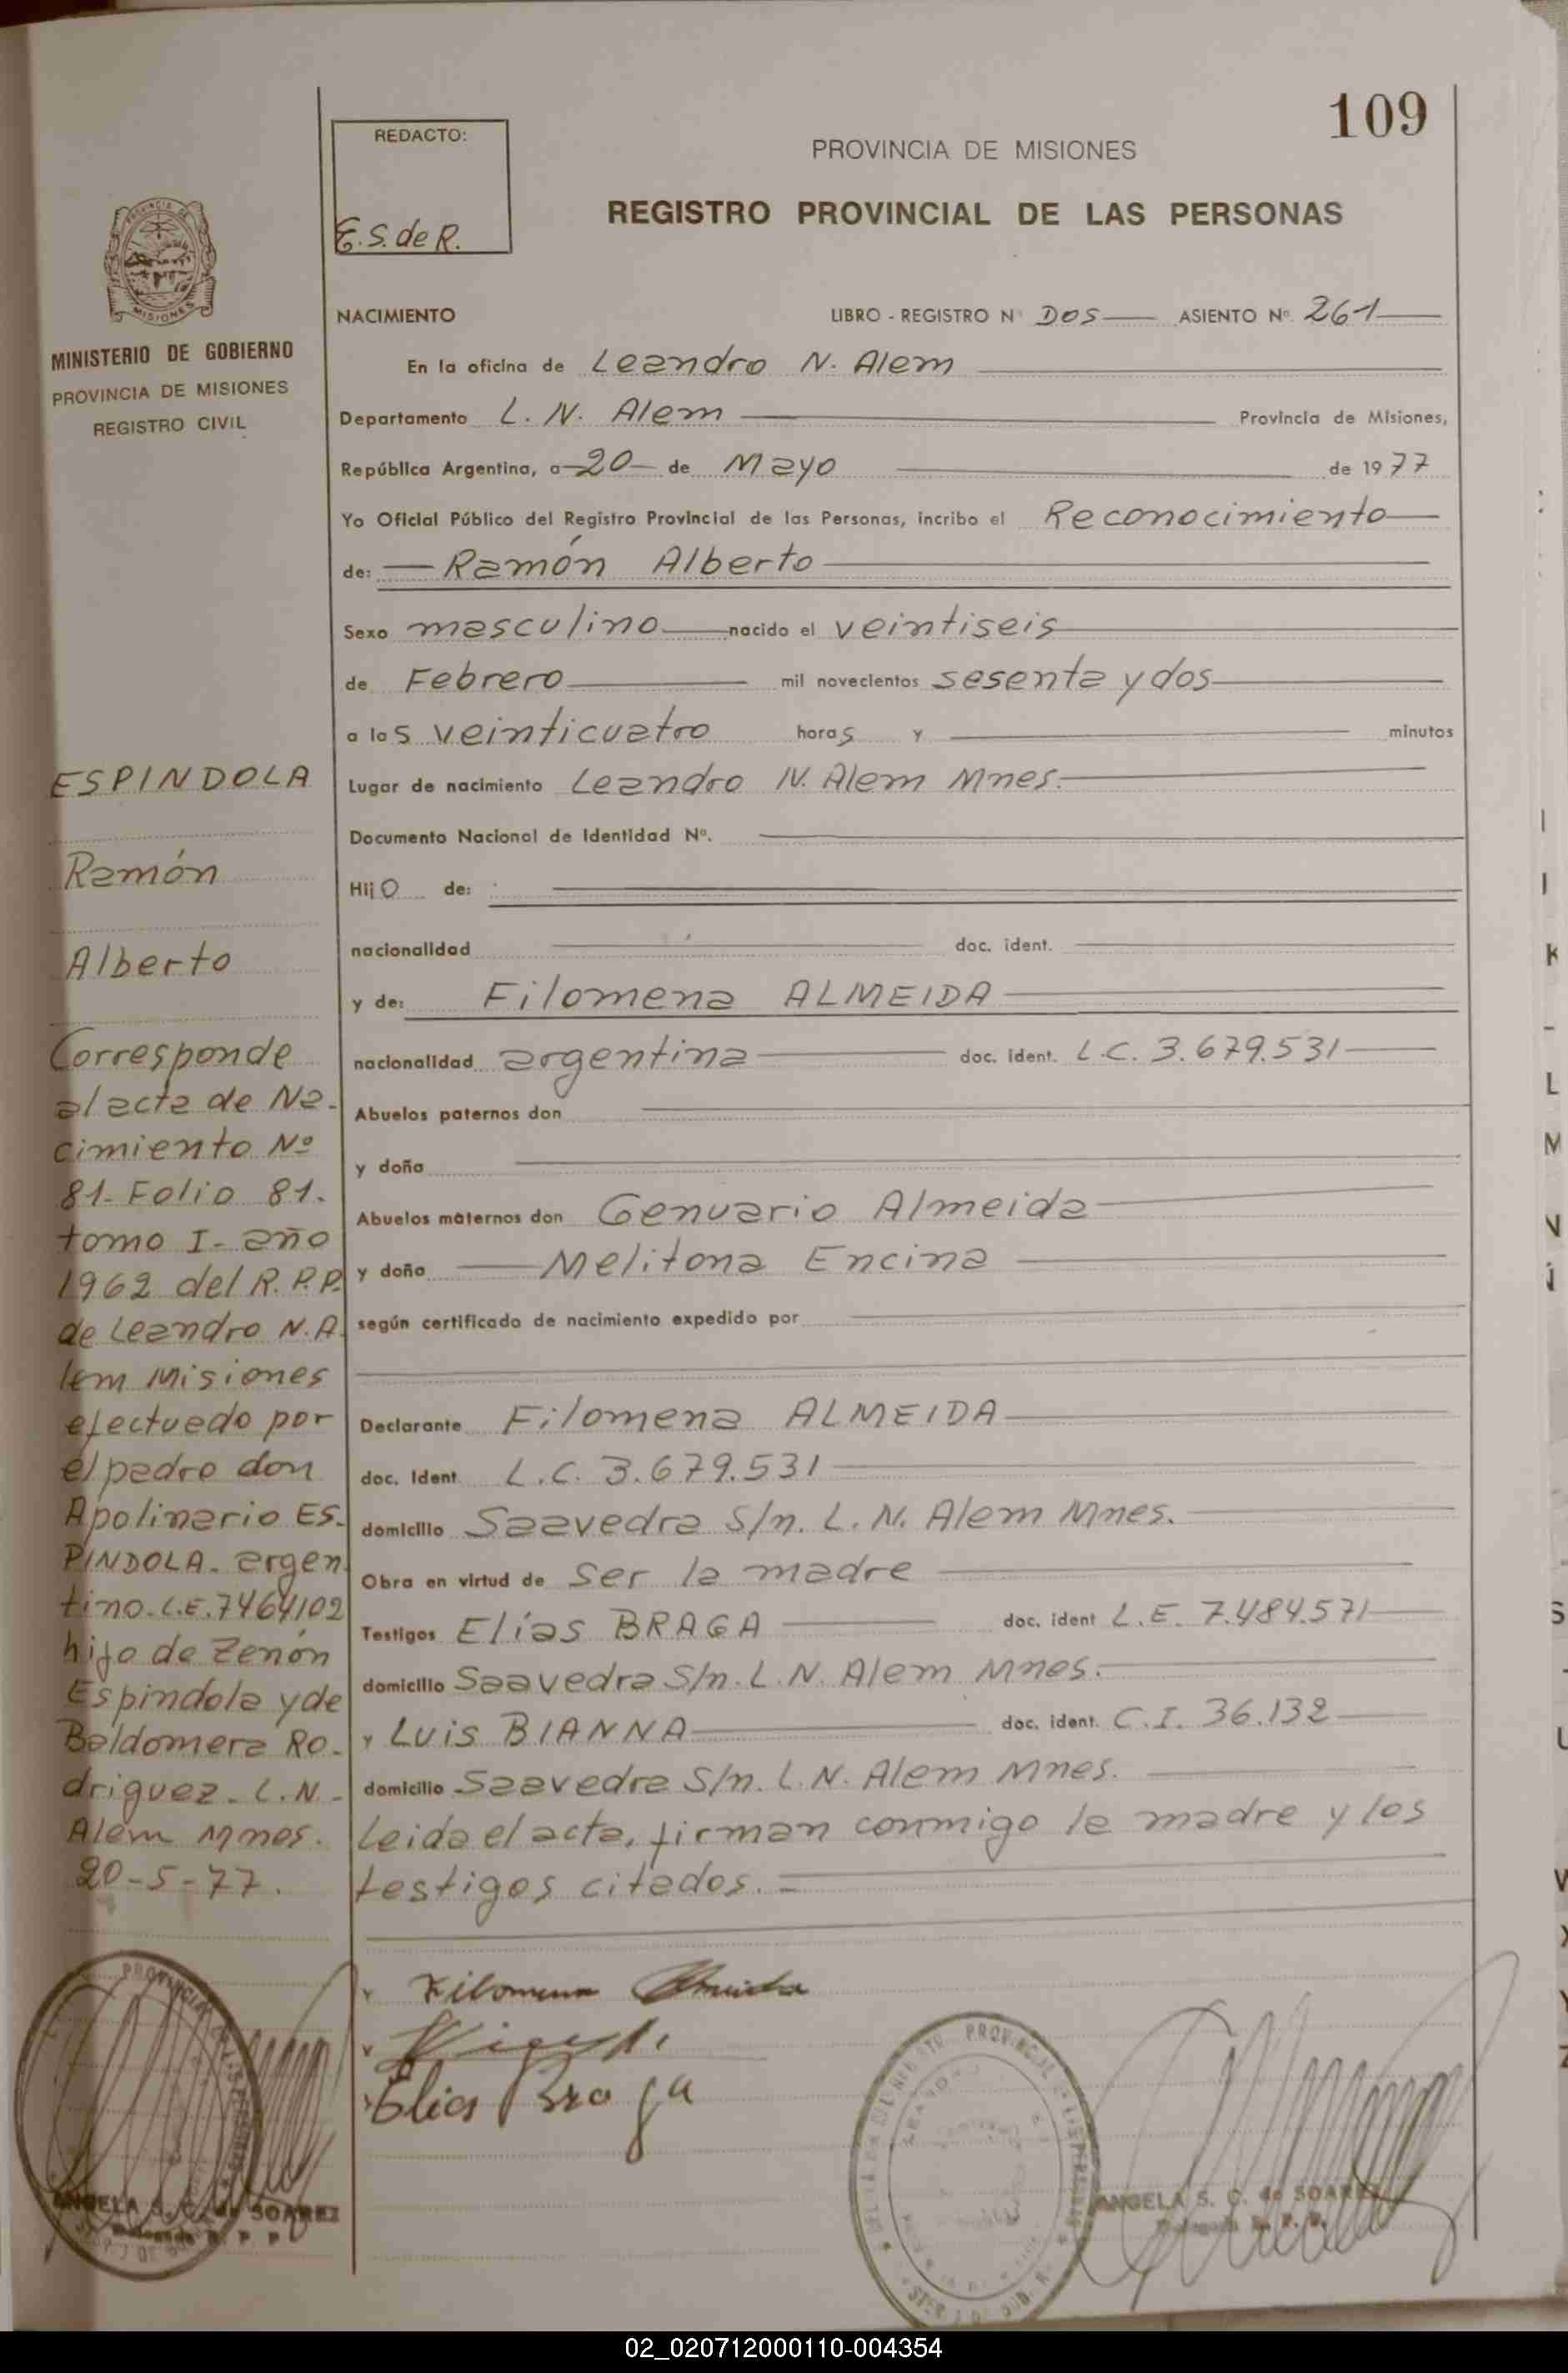 109
REDACTO:
E.S. de R.
PROVINCIA DE MISIONES
REGISTRO PROVINCIAL DE LAS PERSONAS
MINISTERIO DE GOBIERNO
PROVINCIA DE MISIONES
REGISTRO CIVIL
NACIMIENTO LIBRO - REGISTRO N° DOS ASIENTO Nº 261
En la oficina de Leandro N. Alem
Departamento L. N. Alem Provincia de Misiones,
República Argentina, a 20 de Mayo de 1977
Yo Oficial Público del Registro Provincial de las Personas, incribo el Reconocimiento
de: Ramón Alberto
Sexo masculino nacido el veintiseis
de Febrero mil novecientos sesenta y dos
a las veinticuatro horas y minutos
Lugar de nacimiento Leandro N. Alem Mnes.
Documento Nacional de Identidad Nº.
Hijo de:
nacionalidad doc. ident.
y de: Filomena ALMEIDA
nacionalidad argentina doc. ident. L.C. 3.679.531
Abuelos paternos don
y doña
Abuelos maternos don Genuario Almeida
y doña Melitona Encina
según certificado de nacimiento expedido por
Declarante Filomena ALMEIDA
doc. Ident L.C. 3.679.531
domicilio Saavedra S/n. L. N. Alem Mnes.
Obra en virtud de ser la madre
Testigos Elías BRAGA doc. ident L.E. 7.484.571
domicilio Saavedra S/n. L. N. Alem Mnes.
y Luis BIANNA doc. ident. C.I. 36.132
domicilio Saavedra S/n. L. N. Alem Mnes.
Leida el acta, firman conmigo la madre y los
testigos citados.
ESPINDOLA
Ramón
Alberto
Corresponde
al acta de Na-
cimiento Nº
81- Folio 81.
tomo I- año
1962 del R.P.P.
de Leandro N. A
lem Misiones
efectuado por
el padre don
Apolinario ES-
PINDOLA- argen
tino- L.E. 7464102
hijo de Zenón
Espindola y de
Baldomera Ro-
driguez- L.N.-
Alem Mnes.
20-5-77.
Filomena Almeida
Elias Braga
ANGELA S. C. de SOAREZ
Delegada R. P. P.
ANGELA S. C. de SOAREZ
Delegada R. P. P.
02_020712000110-004354